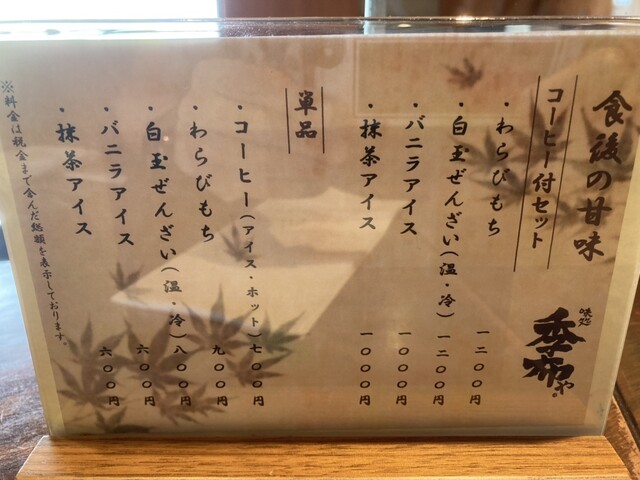 食後の甘味
味処
季布や
コーヒー付セット
・わらびもち 一二〇〇円
・白玉ぜんざい(温・冷) 一二〇〇円
・バニラアイス 一〇〇〇円
・抹茶アイス 一〇〇〇円
単品
・コーヒー(アイス・ホット) 七〇〇円
・わらびもち 九〇〇円
・白玉ぜんざい(温・冷) 八〇〇円
・バニラアイス 六〇〇円
・抹茶アイス 六〇〇円
※料金は税金まで含んだ総額を表示しております。